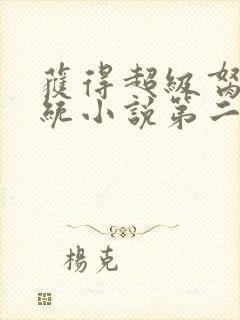 獲得超級
統小說第二
楊克